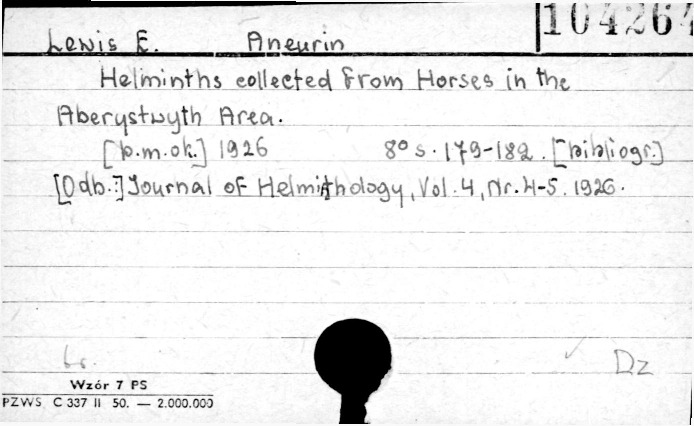 104264
Lewis E. Aneurin
Helminths collected from Horses in the
Aberystwyth Area.
[b.m.ok.] 1926 8° s. 179-182. [bibliogr.]
[Odb.:] Journal of Helminthology, Vol. 4, Nr. 4-5. 1926.
Dz
Wzór 7 PS
PZWS, C 337 II 50. — 2.000.000